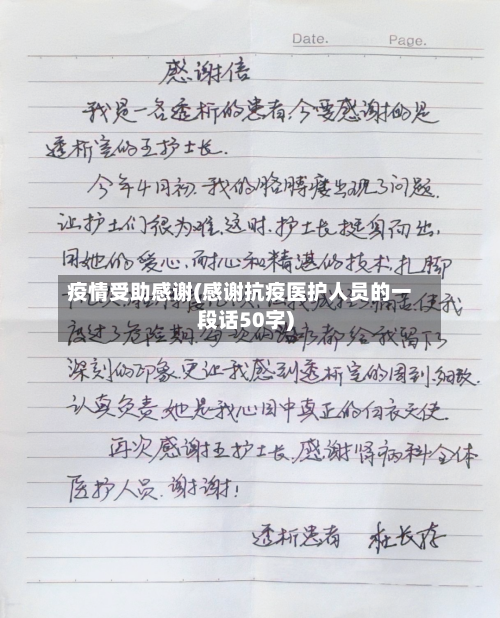 Date. Page.
感谢信
我是一名透析的患者,今要感谢的是
透析室的王护士长.
今年4月初.我的胳膊瘘出现了问题.
让护士们很为难.这时.护士长挺身而出,
用她的爱心,耐心和精湛的技术,扎脚
疫情受助感谢(感谢抗疫医护人员的一
段话50字)
使我
度过了危险期.每次的都给我留下
深刻的印象.更让我感到透析室的周到.细致.
认真负责.她是我心目中真正的白衣天使.
再次感谢王护士长.感谢肾病科全体
医护人员.谢谢!
透析患者 杜长